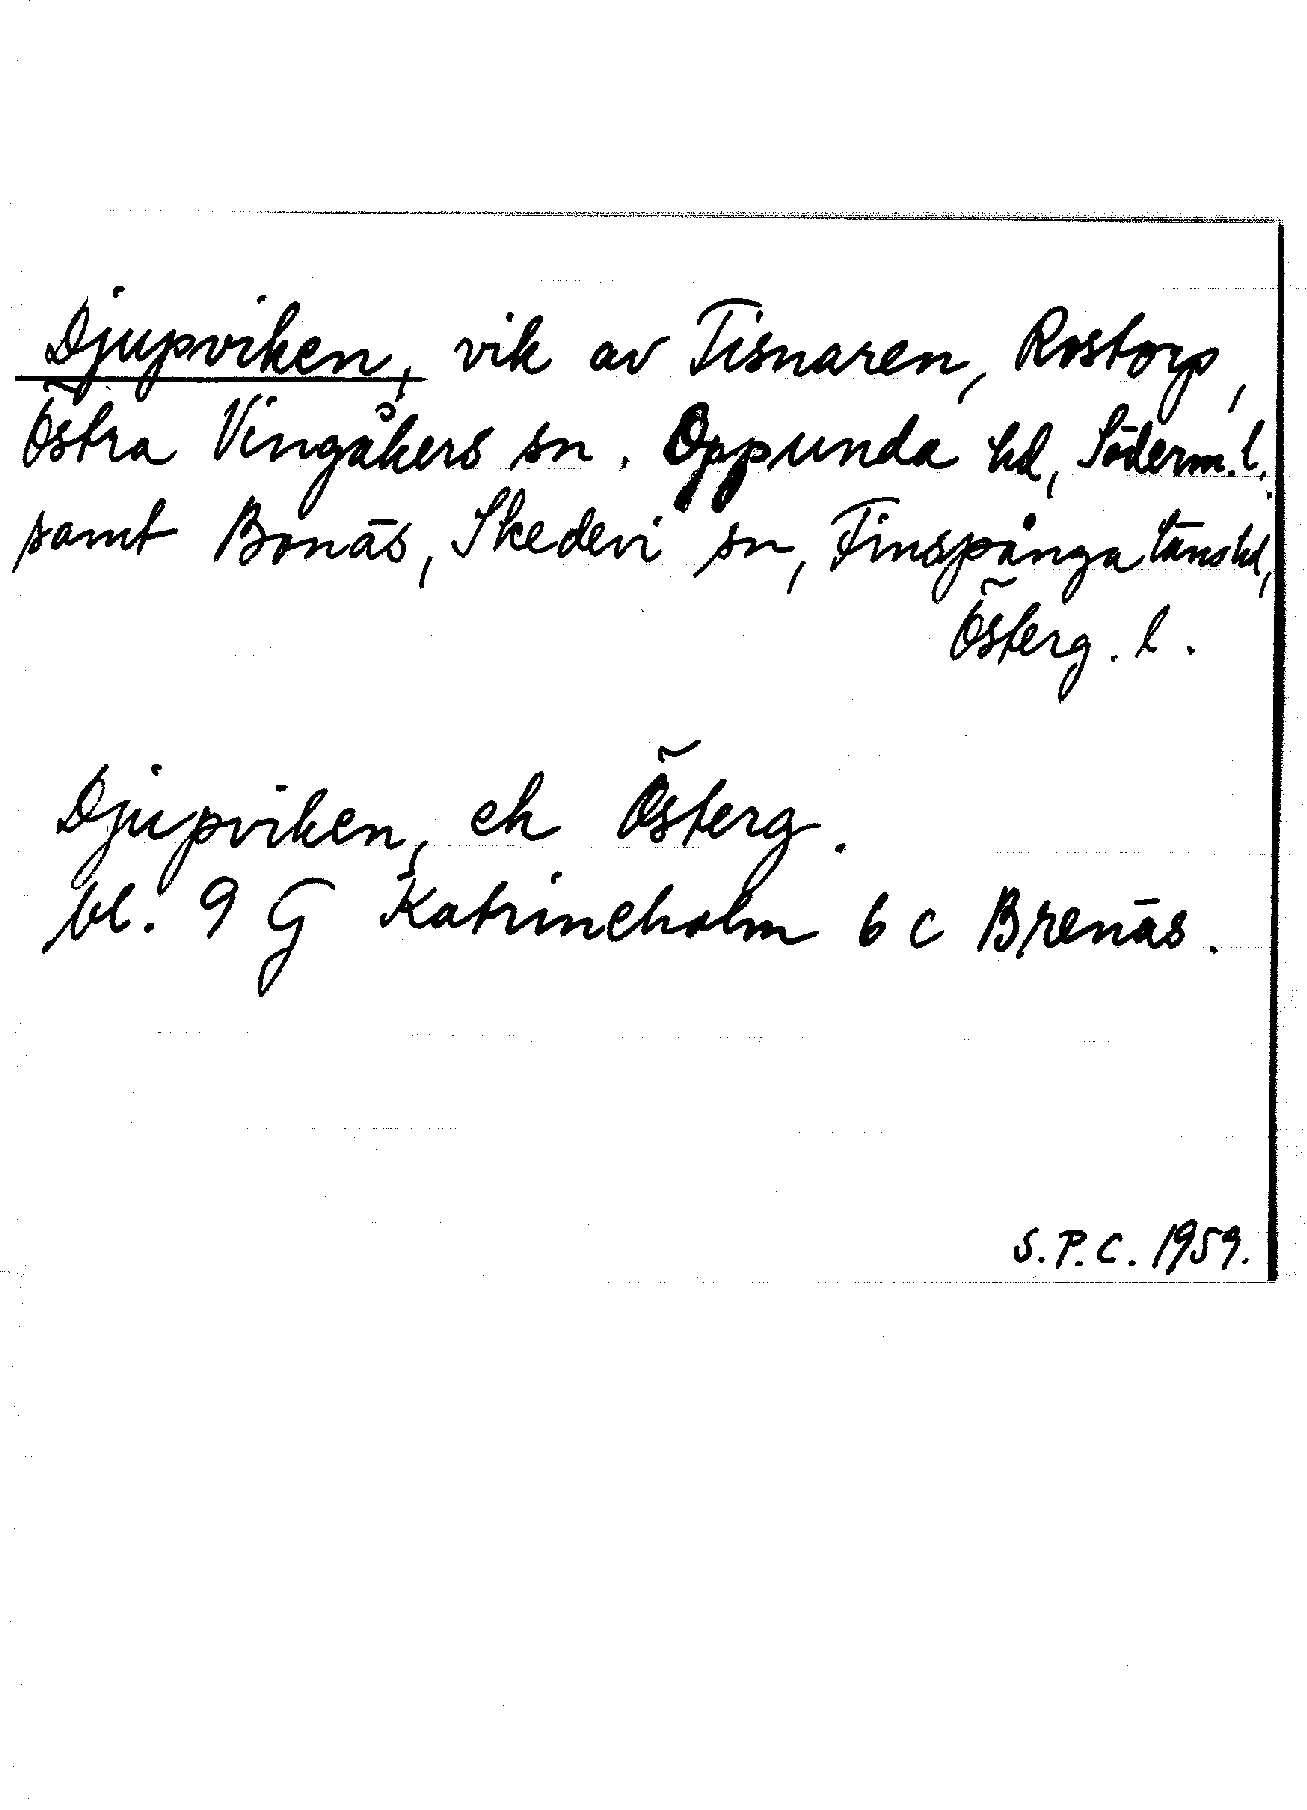 Djupviken, vik av Tisnaren, Rostorp,
Östra Vingåkers sn. Oppunda hd, Söderm. l.
samt Bonäs, Skedevi sn, Finspånga länshd,
Österg. l.
Djupviken, ek Österg.
bl. 9 G Katrineholm 6 c Brenäs.
S.P.C. 1959.